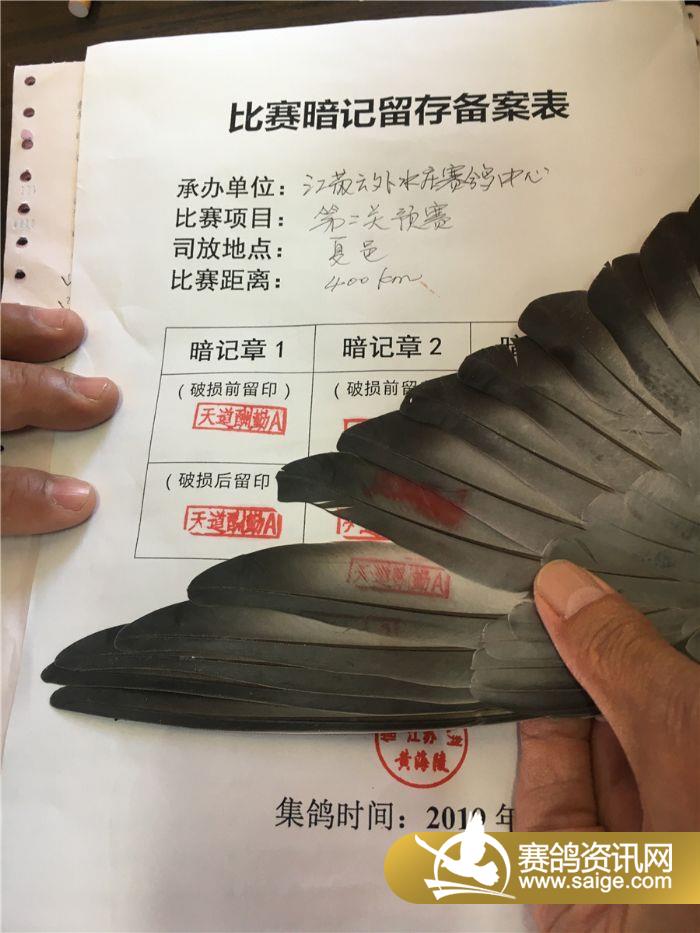 比赛暗记留存备案表
承办单位：江苏云外水庄赛鸽中心
比赛项目：第二关预赛
司放地点：夏邑
比赛距离：400 km
暗记章1 暗记章2
（破损前留印） （破损前留
天道酬勤A
（破损后留印）
天道酬勤A
天道酬勤A
江苏
黄海陵
集鸽时间：2019 年
赛鸽资讯网
www.saige.com